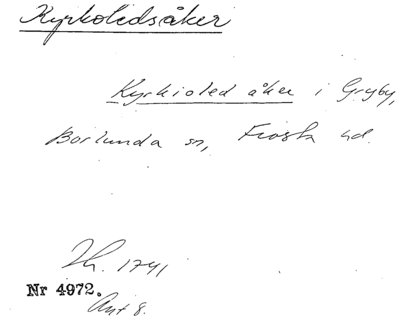 Kyrkoledsåker
Kyrkioled åker i Gryby,
Borlunda sn, Frosta hd.
Lh. 1741
Nr 4972.
Akt 8.